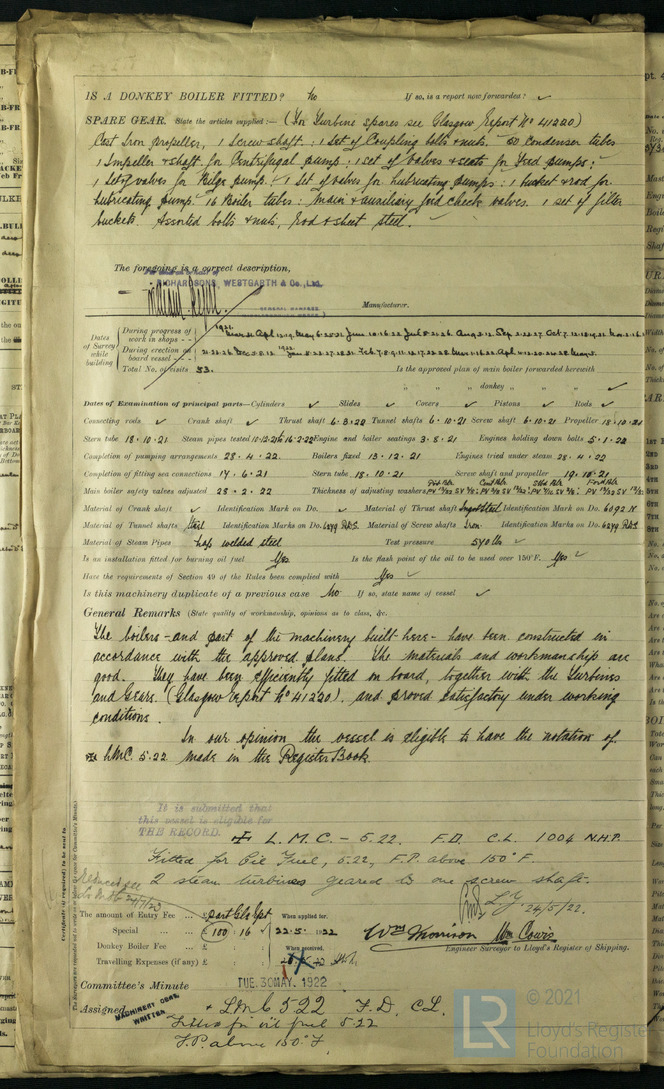 IS A DONKEY BOILER FITTED? No If so, is a report now forwarded? ✓
SPARE GEAR. State the articles supplied:— (For Turbine spares see Glasgow Report No 41220)
Cast Iron propeller, 1 Screw shaft. : 1 Set of Coupling bolts & nuts. 50 condenser tubes
1 Impeller & shaft for Centrifugal pump : 1 set of valves & seats for Feed pumps ;
1 Set of valves for Bilge pump. 1 Set of valves for Lubricating pumps : 1 bucket & rod for
Lubricating pump. 16 Boiler tubes : Main & auxiliary feed check valves. 1 set of filter
buckets. Assorted bolts & nuts, Rod & sheet steel.
The foregoing is a correct description,
RICHARDSONS, WESTGARTH & Co., Ltd.
GENERAL MANAGER Manufacturer.
Dates of Survey while building
During progress of work in shops - -
During erection on board vessel - - -
Total No. of visits 53. Is the approved plan of main boiler forwarded herewith
" " " donkey " " " ✓
Dates of Examination of principal parts—Cylinders ✓ Slides ✓ Covers ✓ Pistons ✓ Rods ✓
Connecting rods ✓ Crank shaft ✓ Thrust shaft 6.3.22 Tunnel shafts 6.10.21 Screw shaft 6.10.21 Propeller 18.10.21
Stern tube 18.10.21 Steam pipes tested Engine and boiler seatings 3.5.21 Engines holding down bolts 5.1.22
Completion of pumping arrangements 28.4.22 Boilers fixed 13.12.21 Engines tried under steam 28.4.22
Completion of fitting sea connections 17.6.21 Stern tube 18.10.21 Screw shaft and propeller 19.10.21
Main boiler safety valves adjusted 28.2.22 Thickness of adjusting washers
Material of Crank shaft ✓ Identification Mark on Do. ✓ Material of Thrust shaft Ingot Steel Identification Mark on Do. 6092 H
Material of Tunnel shafts Steel Identification Marks on Do. 6249 Material of Screw shafts Iron Identification Marks on Do. 6249
Material of Steam Pipes Lap welded steel Test pressure 540 lbs ✓
Is an installation fitted for burning oil fuel Yes Is the flash point of the oil to be used over 150°F. Yes ✓
Have the requirements of Section 49 of the Rules been complied with Yes ✓
Is this machinery duplicate of a previous case No If so, state name of vessel ✓
General Remarks (State quality of workmanship, opinions as to class, &c.
The boilers - and part of the machinery built here - have been constructed in
accordance with the approved plans. The materials and workmanship are
good. They have been efficiently fitted on board, together with the Turbines
and Gears. (Glasgow report No 41220), and proved satisfactory under working
conditions.
In our opinion the vessel is eligible to have the notation of
✠ LMC. 5.22 made in the Register Book.
It is submitted that
this vessel is eligible for
THE RECORD. ✠ L.M.C - 5.22. F.D. C.L. 1004 N.H.P.
Fitted for Oil Fuel, 5,22, F.P. above 150°F.
2 steam turbines geared to one screw shaft.
24/5/22.
The amount of Entry Fee ... £ part Gls Rpt When applied for,
Special ... ... £ 100 : 16 22.5.1922
Donkey Boiler Fee ... £ When received,
Travelling Expenses (if any) £
Wm Morrison Wm Cowis
Engineer Surveyor to Lloyd's Register of Shipping.
Committee's Minute TUE. 30 MAY. 1922
Assigned + LMC 5.22 F.D. C.L.
MACHINERY CERT. WRITTEN
Fitted for oil fuel 5.22
F.P. above 150°F
© 2021
Lloyd's Register
Foundation